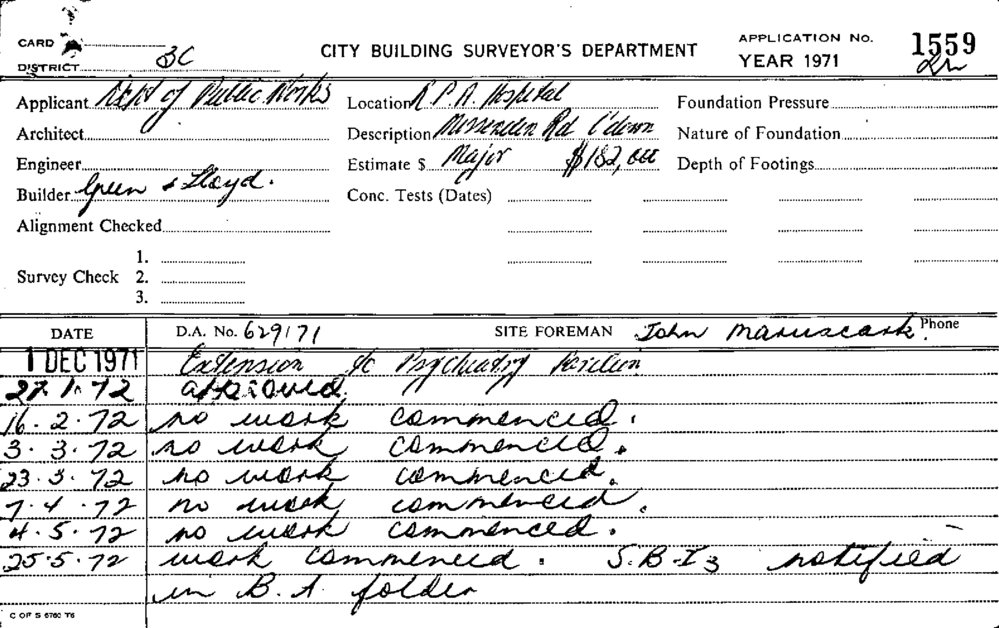 CARD
DISTRICT 3C
CITY BUILDING SURVEYOR'S DEPARTMENT
APPLICATION No. 1559
YEAR 1971
Applicant Dept of Public Works
Location R P. A. Hospital
Foundation Pressure
Architect
Description Missenden Rd C'down
Nature of Foundation
Engineer
Estimate $ Major $182,000
Depth of Footings
Builder Green & Lloyd.
Conc. Tests (Dates)
Alignment Checked
1.
Survey Check 2.
3.
DATE D.A. No. 629/71 SITE FOREMAN John Phone
1 DEC 1971 Extension to Psychiatry Pavilion
27.1.72 approved.
16.2.72 no work commenced.
3.3.72 no work commenced.
23.3.72 no work commenced.
7.4.72 no work commenced.
4.5.72 no work commenced.
25.5.72 work commenced. S.B-I3 notified
in B.A. folder
C OF S 6760 T6